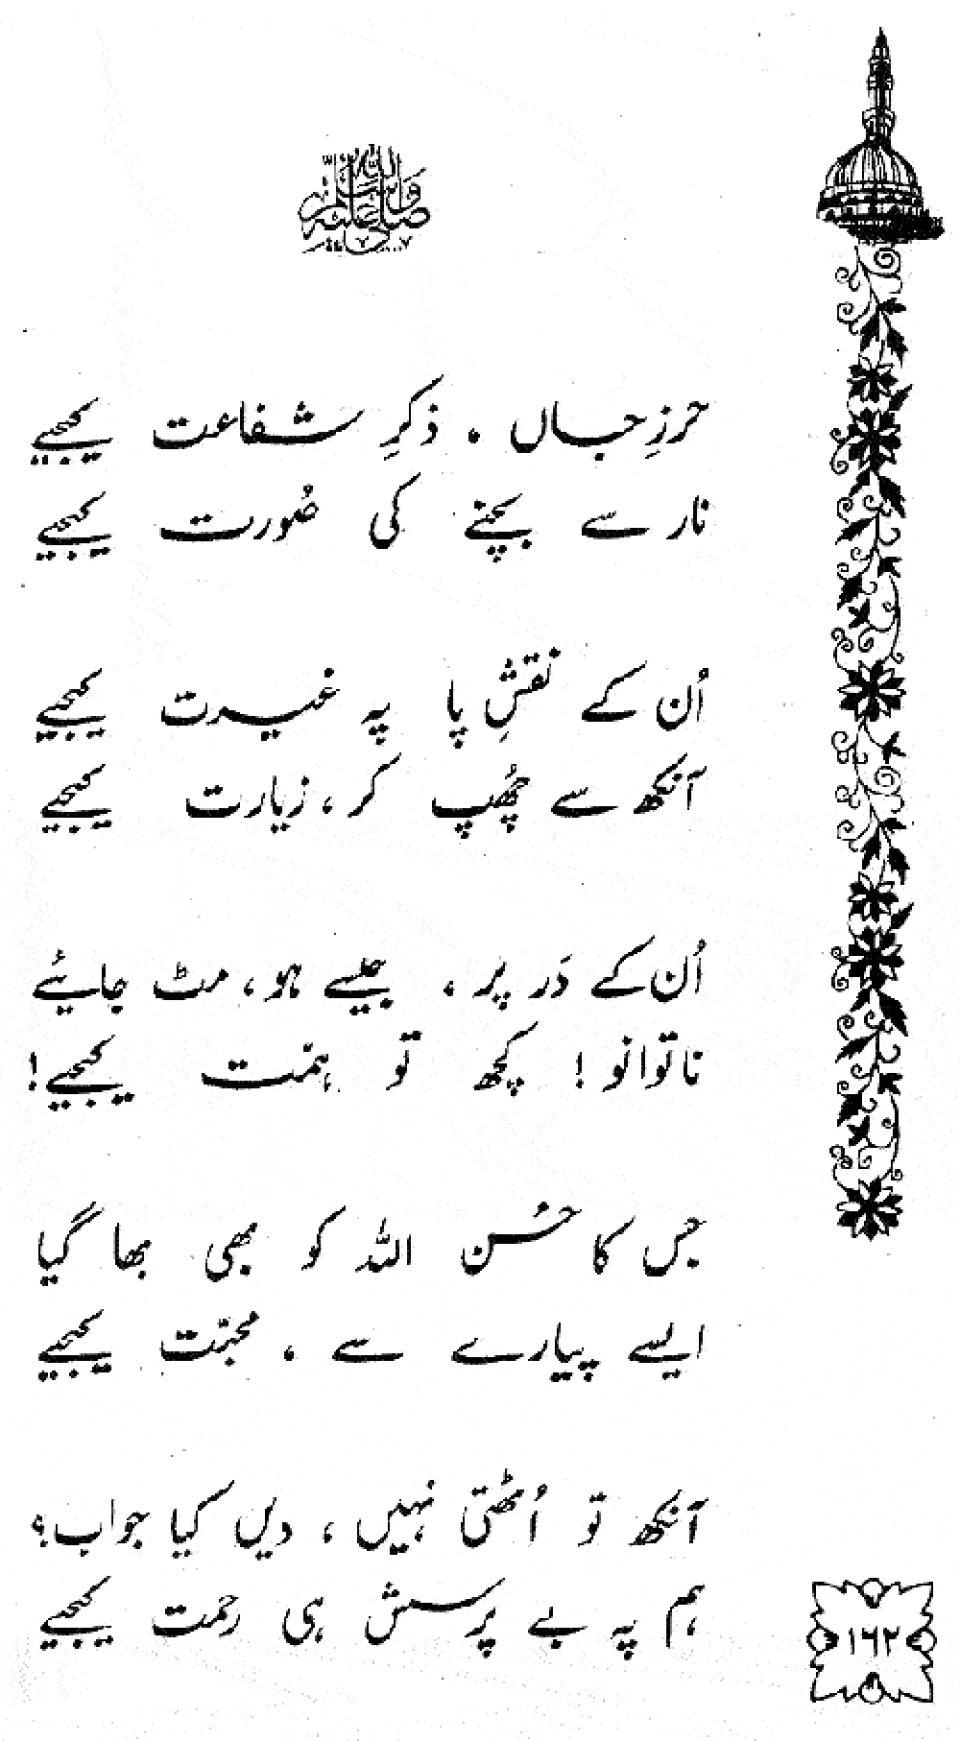 صلی اللہ علیہ وآلہ وسلم
حرزِ جاں ، ذکرِ شفاعت کیجیے
نار سے بچنے کی صُورت کیجیے
اُن کے نقشِ پا پہ غیرت کیجیے
آنکھ سے چھُپ کر ، زیارت کیجیے
اُن کے دَر پر ، جیسے ہو ، مٹ جائیے
ناتوانو ! کچھ تو ہمّت کیجیے !
جس کا حُسن اللہ کو بھی بھا گیا
ایسے پیارے سے ، محبّت کیجیے
آنکھ تو اُٹھتی نہیں ، دیں کیا جواب ؟
ہم پہ بے پُرسش ہی رحمت کیجیے
۱۶۲